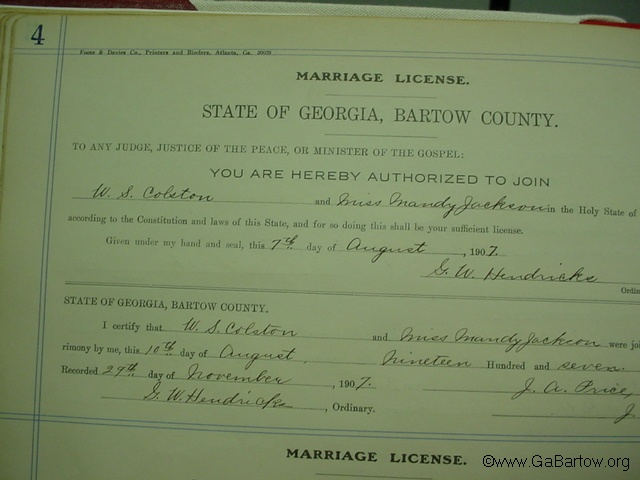 4
Foote & Davies Co., Printers and Binders, Atlanta, Ga.
MARRIAGE LICENSE.
STATE OF GEORGIA, BARTOW COUNTY.
TO ANY JUDGE, JUSTICE OF THE PEACE, OR MINISTER OF THE GOSPEL:
YOU ARE HEREBY AUTHORIZED TO JOIN
W. S. Colston and Miss Mandy Jackson in the Holy State of
according to the Constitution and laws of this State, and for so doing this shall be your sufficient license.
Given under my hand and seal, this 7th day of August, 1907.
G. W. Hendricks
Ordin
STATE OF GEORGIA, BARTOW COUNTY.
I certify that W. S. Colston and Miss Mandy Jackson were joi
rimony by me, this 10th day of August, Nineteen Hundred and seven.
Recorded 29th day of November, 1907. J. A. Price,
G. W. Hendricks, Ordinary. J.
MARRIAGE LICENSE.
©www.GaBartow.org